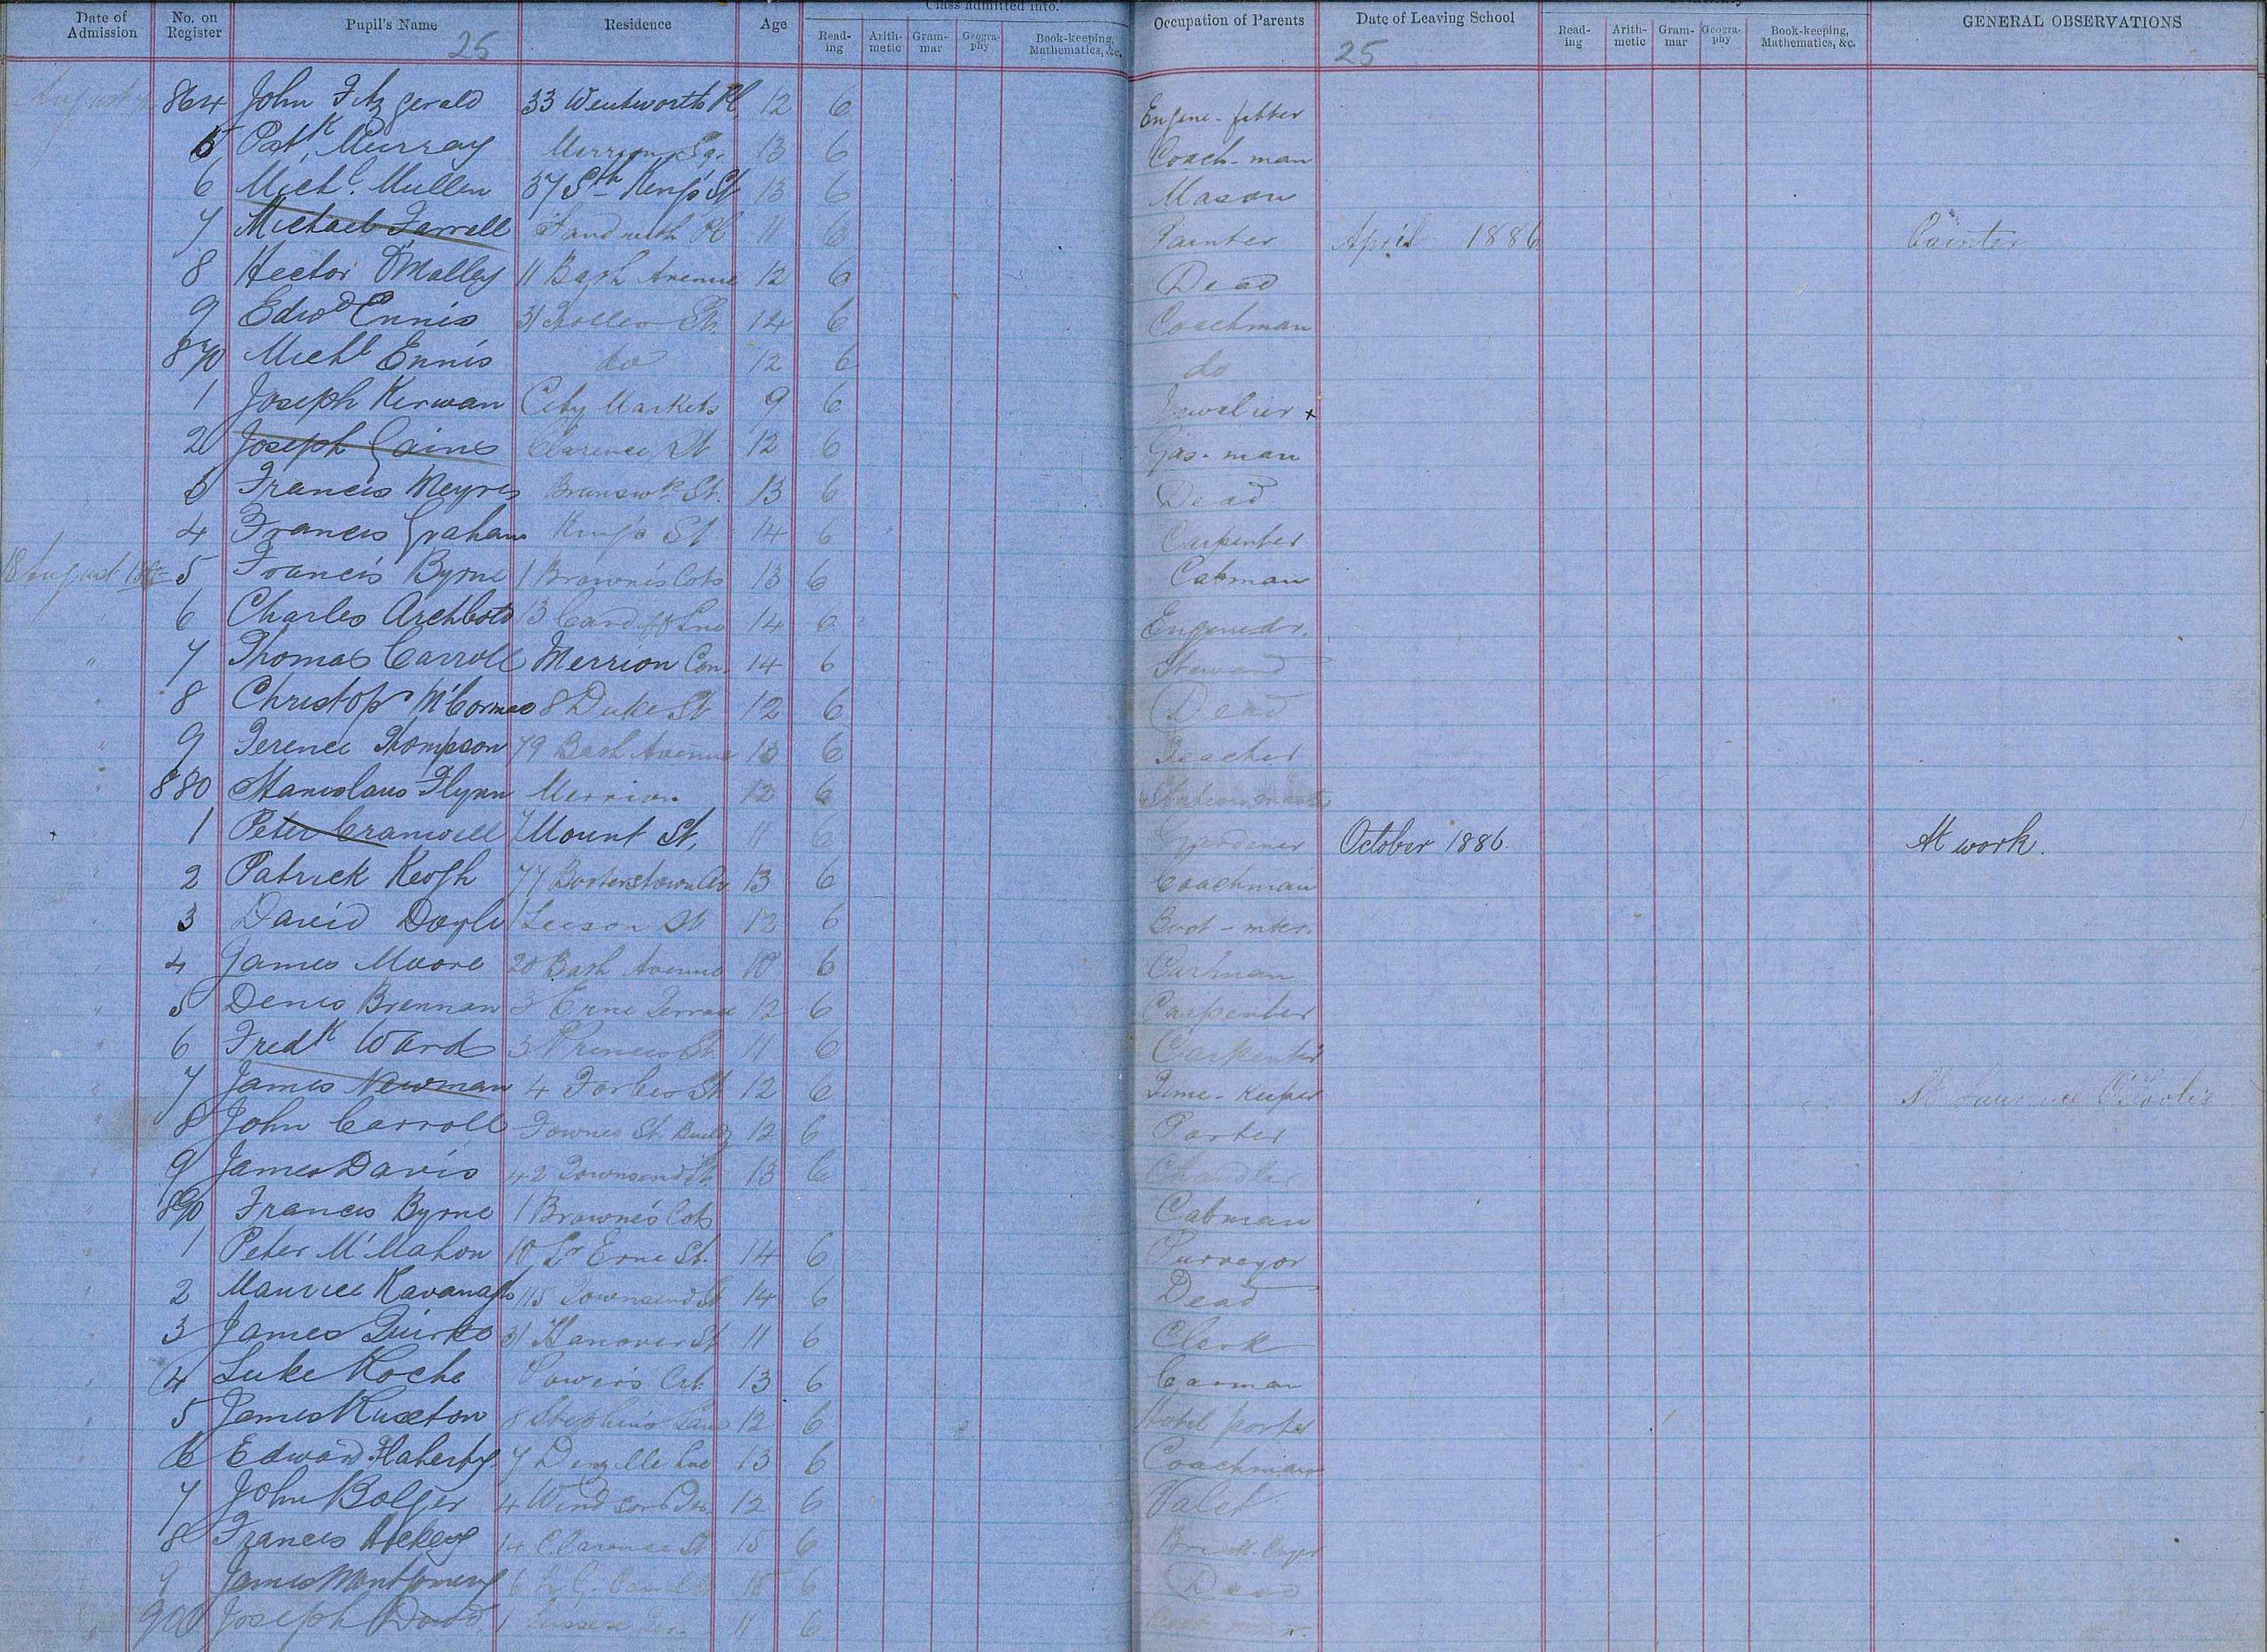 Date of Admission No. on Register Pupil's Name Residence Age Class admitted into. Reading Arithmetic Grammar Geography Book-keeping, Mathematics, &c. Occupation of Parents Date of Leaving School Reading Arithmetic Grammar Geography Book-keeping, Mathematics, &c. GENERAL OBSERVATIONS
25 25
August 864 John Fitzgerald 33 Wentworth Pl 12 6 Engine-fitter
5 Patk Murray Merrion Sq. 13 6 Coach-man
6 Michl. Mullen 37 Sth King's St 13 6 Mason
7 Michael Farrell Sandwith Pl 11 6 Painter April 1886 Painter
8 Hector O'Malley 11 Bash Avenue 12 6 Dead
9 Edwd Ennis 31 St. 14 6 Coachman
870 Michl Ennis do 12 6 do
1 Joseph Kirwan City Markets 9 6 Jewelier x
2 Joseph Gains Clarence St 12 6 Gas-man
3 Francis Meyres Brunswk St. 13 6 Dead
4 Francis Graham King's St 14 6 Carpenter
18 August 5 Francis Byrne 1 Browne's Cots 13 6 Cabman
6 Charles Archbold 13 Cardiff Lne 14 6 Engineer.
" 7 Thomas Carroll Merrion 14 6 Steward
8 Christopr McCormac 8 Duke St 12 6 Dead
" 9 Terence Thompson 79 Bash Avenue 13 6 Teacher
880 Stanislaus Flynn Merrion 12 6 Station master
1 Peter Cranwell 7 Mount St. 11 6 Gardener October 1886. At work.
2 Patrick Keogh 77 Booterstown Av 13 6 Coachman
3 David Doyle 1 Leeson St 12 6 Boot-mker.
4 James Moore 20 Bash Avenue 10 6 Carman
5 Denis Brennan 3 Erne Terrace 12 6 Carpenter
6 Fredk Ward 3 Princes St 11 6 Carpenter
7 James Newman 4 Forbes St 12 6 Time-keeper St Laurence O'Toole's
8 John Carroll Townes St. Buildg 12 6 Porter
9 James Davis 42 Townsend St. 13 6 Chandler
890 Francis Byrne 1 Browne's Cots Cabman
1 Peter McMahon 10 Lr Erne St. 14 6 Purveyor
2 Maurice Kavanagh 115 Townsend St 14 6 Dead
3 James Quirke 31 Hanover St 11 6 Clerk
4 Luke Roche Power's Crt. 13 6 Carman
5 James Ruxton 8 Stephen's Lane 12 6 Hotel porter
6 Edward Flaherty 7 Denzille Lne 13 6 Coachman
7 John Bolger 4 Windsor Ter. 12 6 Valet
8 Francis Hickey 14 Clarence St 15 6
9 James Montgomery 6 6 Dead
900 Joseph Dowd 1 Sussex Ter. 11 6